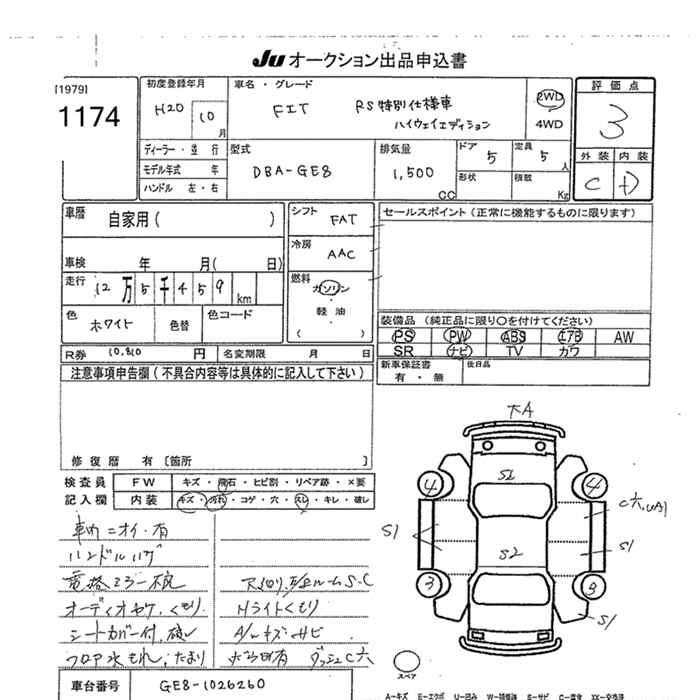 Ju オークション出品申込書
[1979]
1174
初度登録年月
H20 10 月
車名・グレード
FIT RS特別仕様車
ハイウェイエディション
2WD
4WD
評価点
3
外装 内装
C D
ディーラー・並行
モデル年式 年
ハンドル 左・右
型式
DBA-GE8
排気量
1,500 CC
ドア 5
定員 5 人
形状
積数 Kg
車歴 自家用( )
車検 年 月( 日)
走行 12万5千459 km
色 ホワイト
色替
色コード
シフト FAT
冷房 AAC
燃料
ガソリン
・
軽油
・
( )
セールスポイント(正常に機能するものに限ります)
装備品 (純正品に限り○を付けてください)
PS PW ABS エアB AW
SR ナビ TV カワ
R券 10,810 円 名変期限 月 日
新車保証書 有・無
後日品
注意事項申告欄(不具合内容等は具体的に記入して下さい)
修復歴 有[箇所 ]
検査員 FW キズ・飛石・ヒビ割・リペア跡・×要
記入欄 内装 キズ・汚れ・コゲ・穴・スレ・キレ・破レ
車内ニオイ・有
ハンドルハゲ
電格ミラー不良
オーディオヤケ、くもり
シートカバー付、破レ
フロア水もれ、たまり
ルームS・C
Hライトくもり
A/wキズサビ
ダッシュC穴
大A
S2
4
4
C穴,UA1
S1
S2
S1
3
3
S1
スペア
車台番号 GE8-1026260
A=キズ E=エクボ U=凹み S=サビ C=腐食 XX=交換済